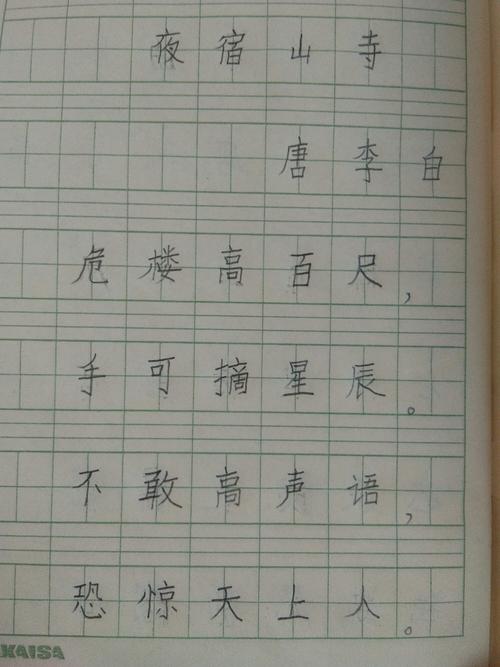 夜宿山寺
唐李白
危楼高百尺，
手可摘星辰。
不敢高声语，
恐惊天上人。
KAISA